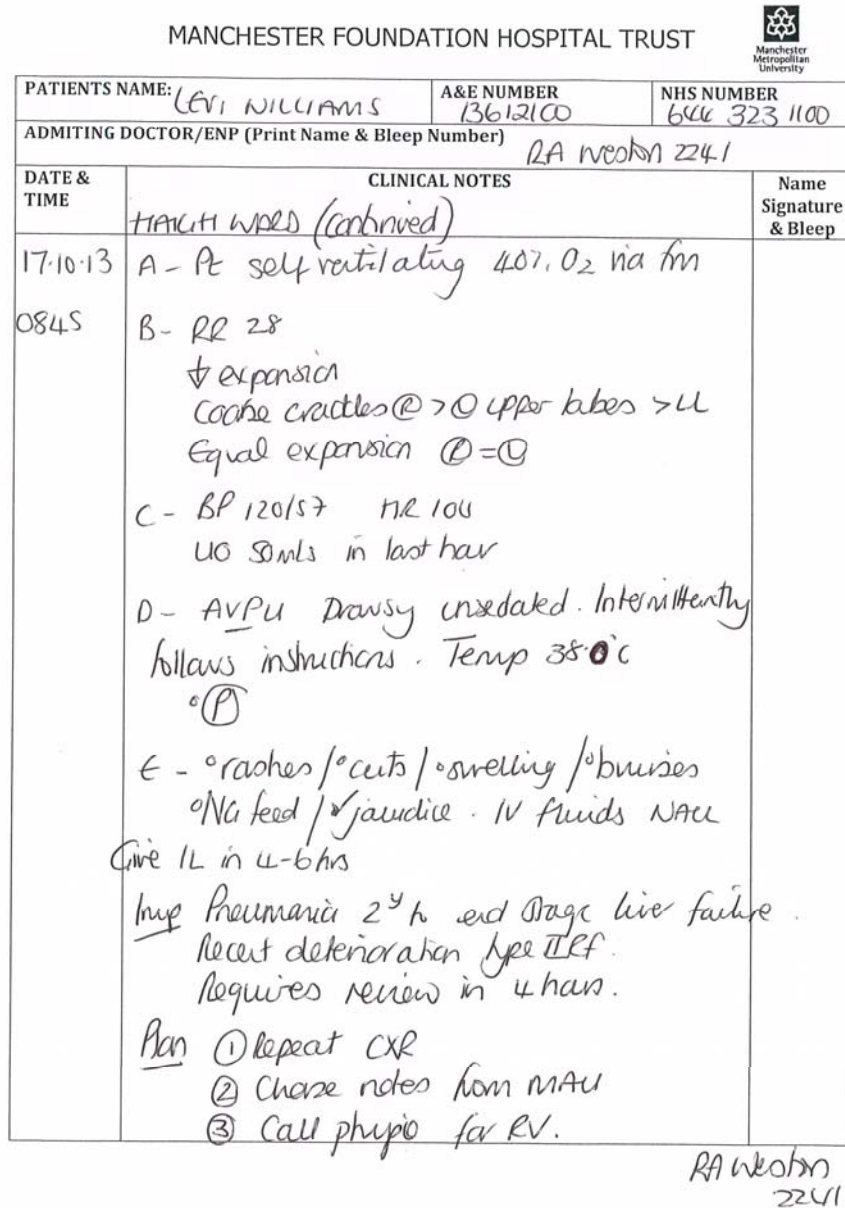 MANCHESTER FOUNDATION HOSPITAL TRUST
Manchester
Metropolitan
University
PATIENTS NAME: LEVI WILLIAMS
A&E NUMBER
13612100
NHS NUMBER
644 323 1100
ADMITING DOCTOR/ENP (Print Name & Bleep Number) RA Weston 2241
DATE & TIME
CLINICAL NOTES
Name Signature & Bleep
HAIGH WARD (continued)
17.10.13 A - Pt self ventilating 40%. O2 via fm
0845 B - RR 28
↓ expansion
Coarse crackles Ⓡ > Ⓛ upper lobes > LL
Equal expansion Ⓡ = Ⓛ
C - BP 120/57 HR 104
UO 50mls in last hour
D - AVPU Drowsy unsedated. Intermittently
follows instructions. Temp 38.0°C
°Ⓟ
E - °rashes/°cuts/°swelling/°bruises
°NG feed/✓jaundice. IV fluids NACL
Give 1L in 4-6hrs
Imp Pneumonia 2y to end stage liver failure.
Recent deterioration type II RF.
Requires review in 4 hours.
Plan ① Repeat CXR
② Chase notes from MAU
③ Call physio for RV.
RA Weston
2241